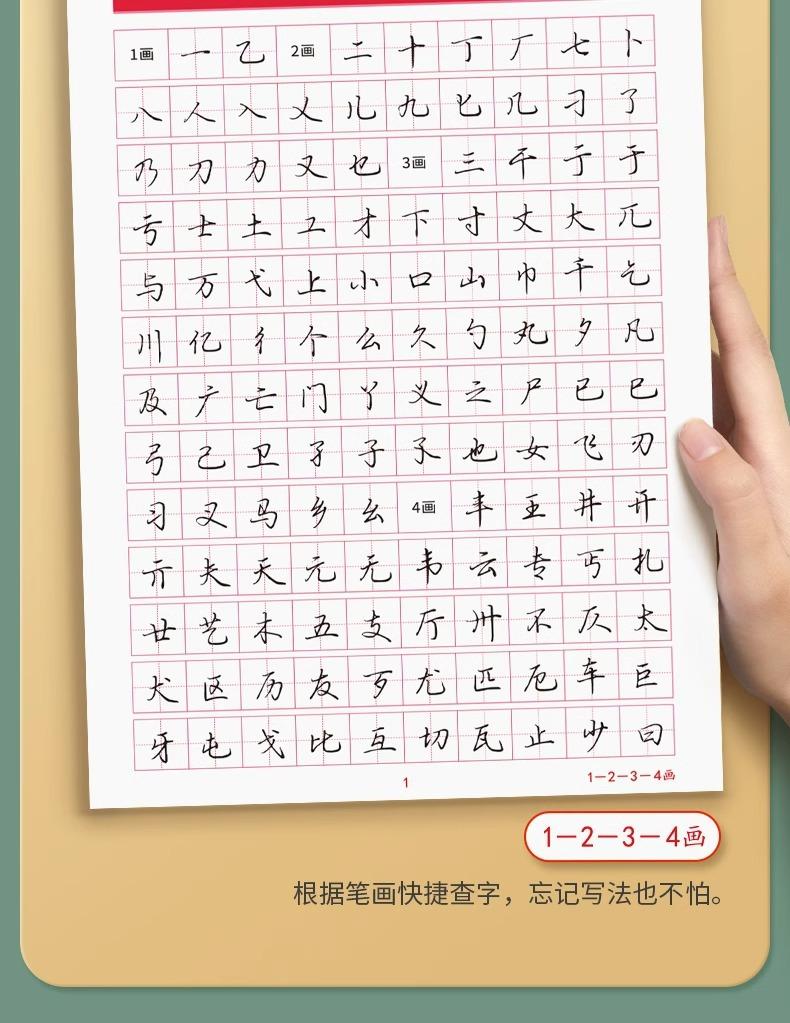 1画 一 乙 2画 二 十 丁 厂 七 卜
八 人 入 乂 儿 九 匕 几 刁 了
乃 刀 力 又 也 3画 三 干 亍 于
亏 士 土 工 才 下 寸 丈 大 兀
与 万 弋 上 小 口 山 巾 千 乞
川 亿 彳 个 么 久 勺 丸 夕 凡
及 广 亡 门 丫 义 之 尸 已 巳
弓 己 卫 孑 子 孓 也 女 飞 刃
习 叉 马 乡 幺 4画 丰 王 井 开
亓 夫 天 元 无 韦 云 专 丐 扎
廿 艺 木 五 支 厅 卅 不 仄 太
犬 区 历 友 歹 尤 匹 厄 车 巨
牙 屯 戈 比 互 切 瓦 止 少 曰
1
1－2－3－4画
1－2－3－4画
根据笔画快捷查字，忘记写法也不怕。